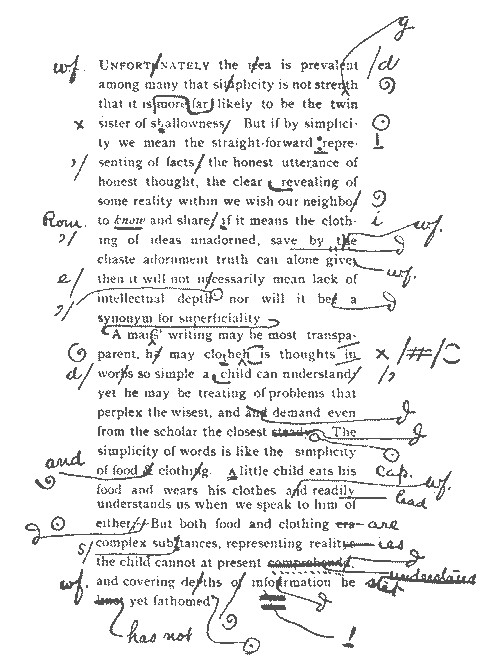 g
wf. UNFORTUNATELY the idea is prevalent /d
among many that simplicity is not strenth
that it is more far likely to be the twin
x sister of shallowness/ But if by simplici-
ty we mean the straight-forward repre-
,/ senting of facts/ the honest utterance of
honest thought, the clear revealing of
some reality within we wish our neighbo/
Rom. to know and share/ if it means the cloth- i wf.
,/ ing of ideas unadorned, save by the
chaste adornment truth can alone give, wf.
e/ then it will not necessarily mean lack of
,/ intellectual depth nor will it be a
synonym for superficiality
A man's writing may be most transpa-
parent, he may clotheh is thoughts in x/#/
d/ words so simple a child can understand/ /,
yet he may be treating of problems that
perplex the wisest, and and demand even
from the scholar the closest The
simplicity of words is like the simplicity
and of food & clothing. A little child eats his Cap. wf.
food and wears his clothes and readily lead
understands us when we speak to him of
either// But both food and clothing are
s/ complex substances, representing realit ies
the child cannot at present understand
wf. and covering depths of information he stet
yet fathomed
has not !